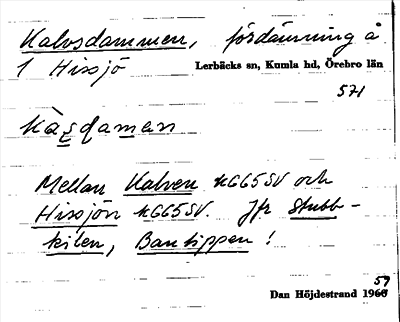 Kalvsdammen, fördämning å
1 Hissjö Lerbäcks sn, Kumla hd, Örebro län
571
kàʂdamən
Mellan Kalven k665SV och
Hissjön k665SV. Jfr Stubb-
kilen, Bantippen!
59
Dan Höjdestrand 1960